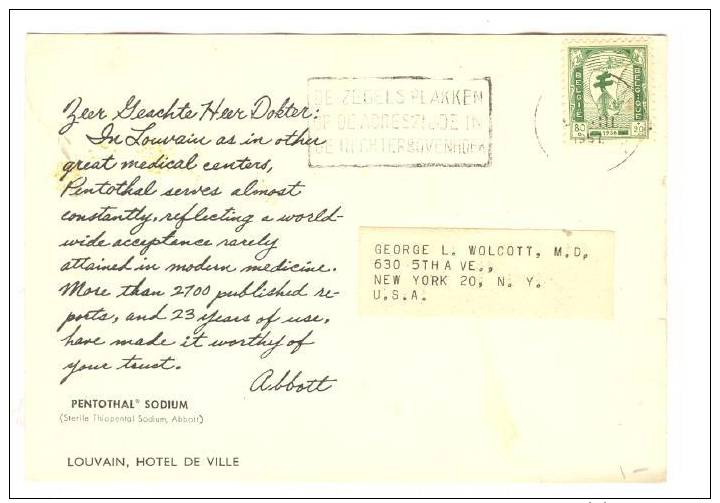 DE ZEGELS PLAKKEN
OP DE ADRESZIJDE IN
DE RECHTERBOVENHOEK
BELGIE
BELGIQUE
80
1956
20
Zeer Geachte Heer Dokter:
In Louvain as in other
great medical centers,
Pentothal serves almost
constantly, reflecting a world-
wide acceptance rarely
attained in modern medicine.
More than 2700 published re-
ports, and 23 years of use,
have made it worthy of
your trust.
Abbott
GEORGE L. WOLCOTT, M.D,
630 5TH AVE.,
NEW YORK 20, N. Y.
U.S.A.
PENTOTHAL® SODIUM
(Sterile Thiopental Sodium, Abbott)
LOUVAIN, HOTEL DE VILLE
1-